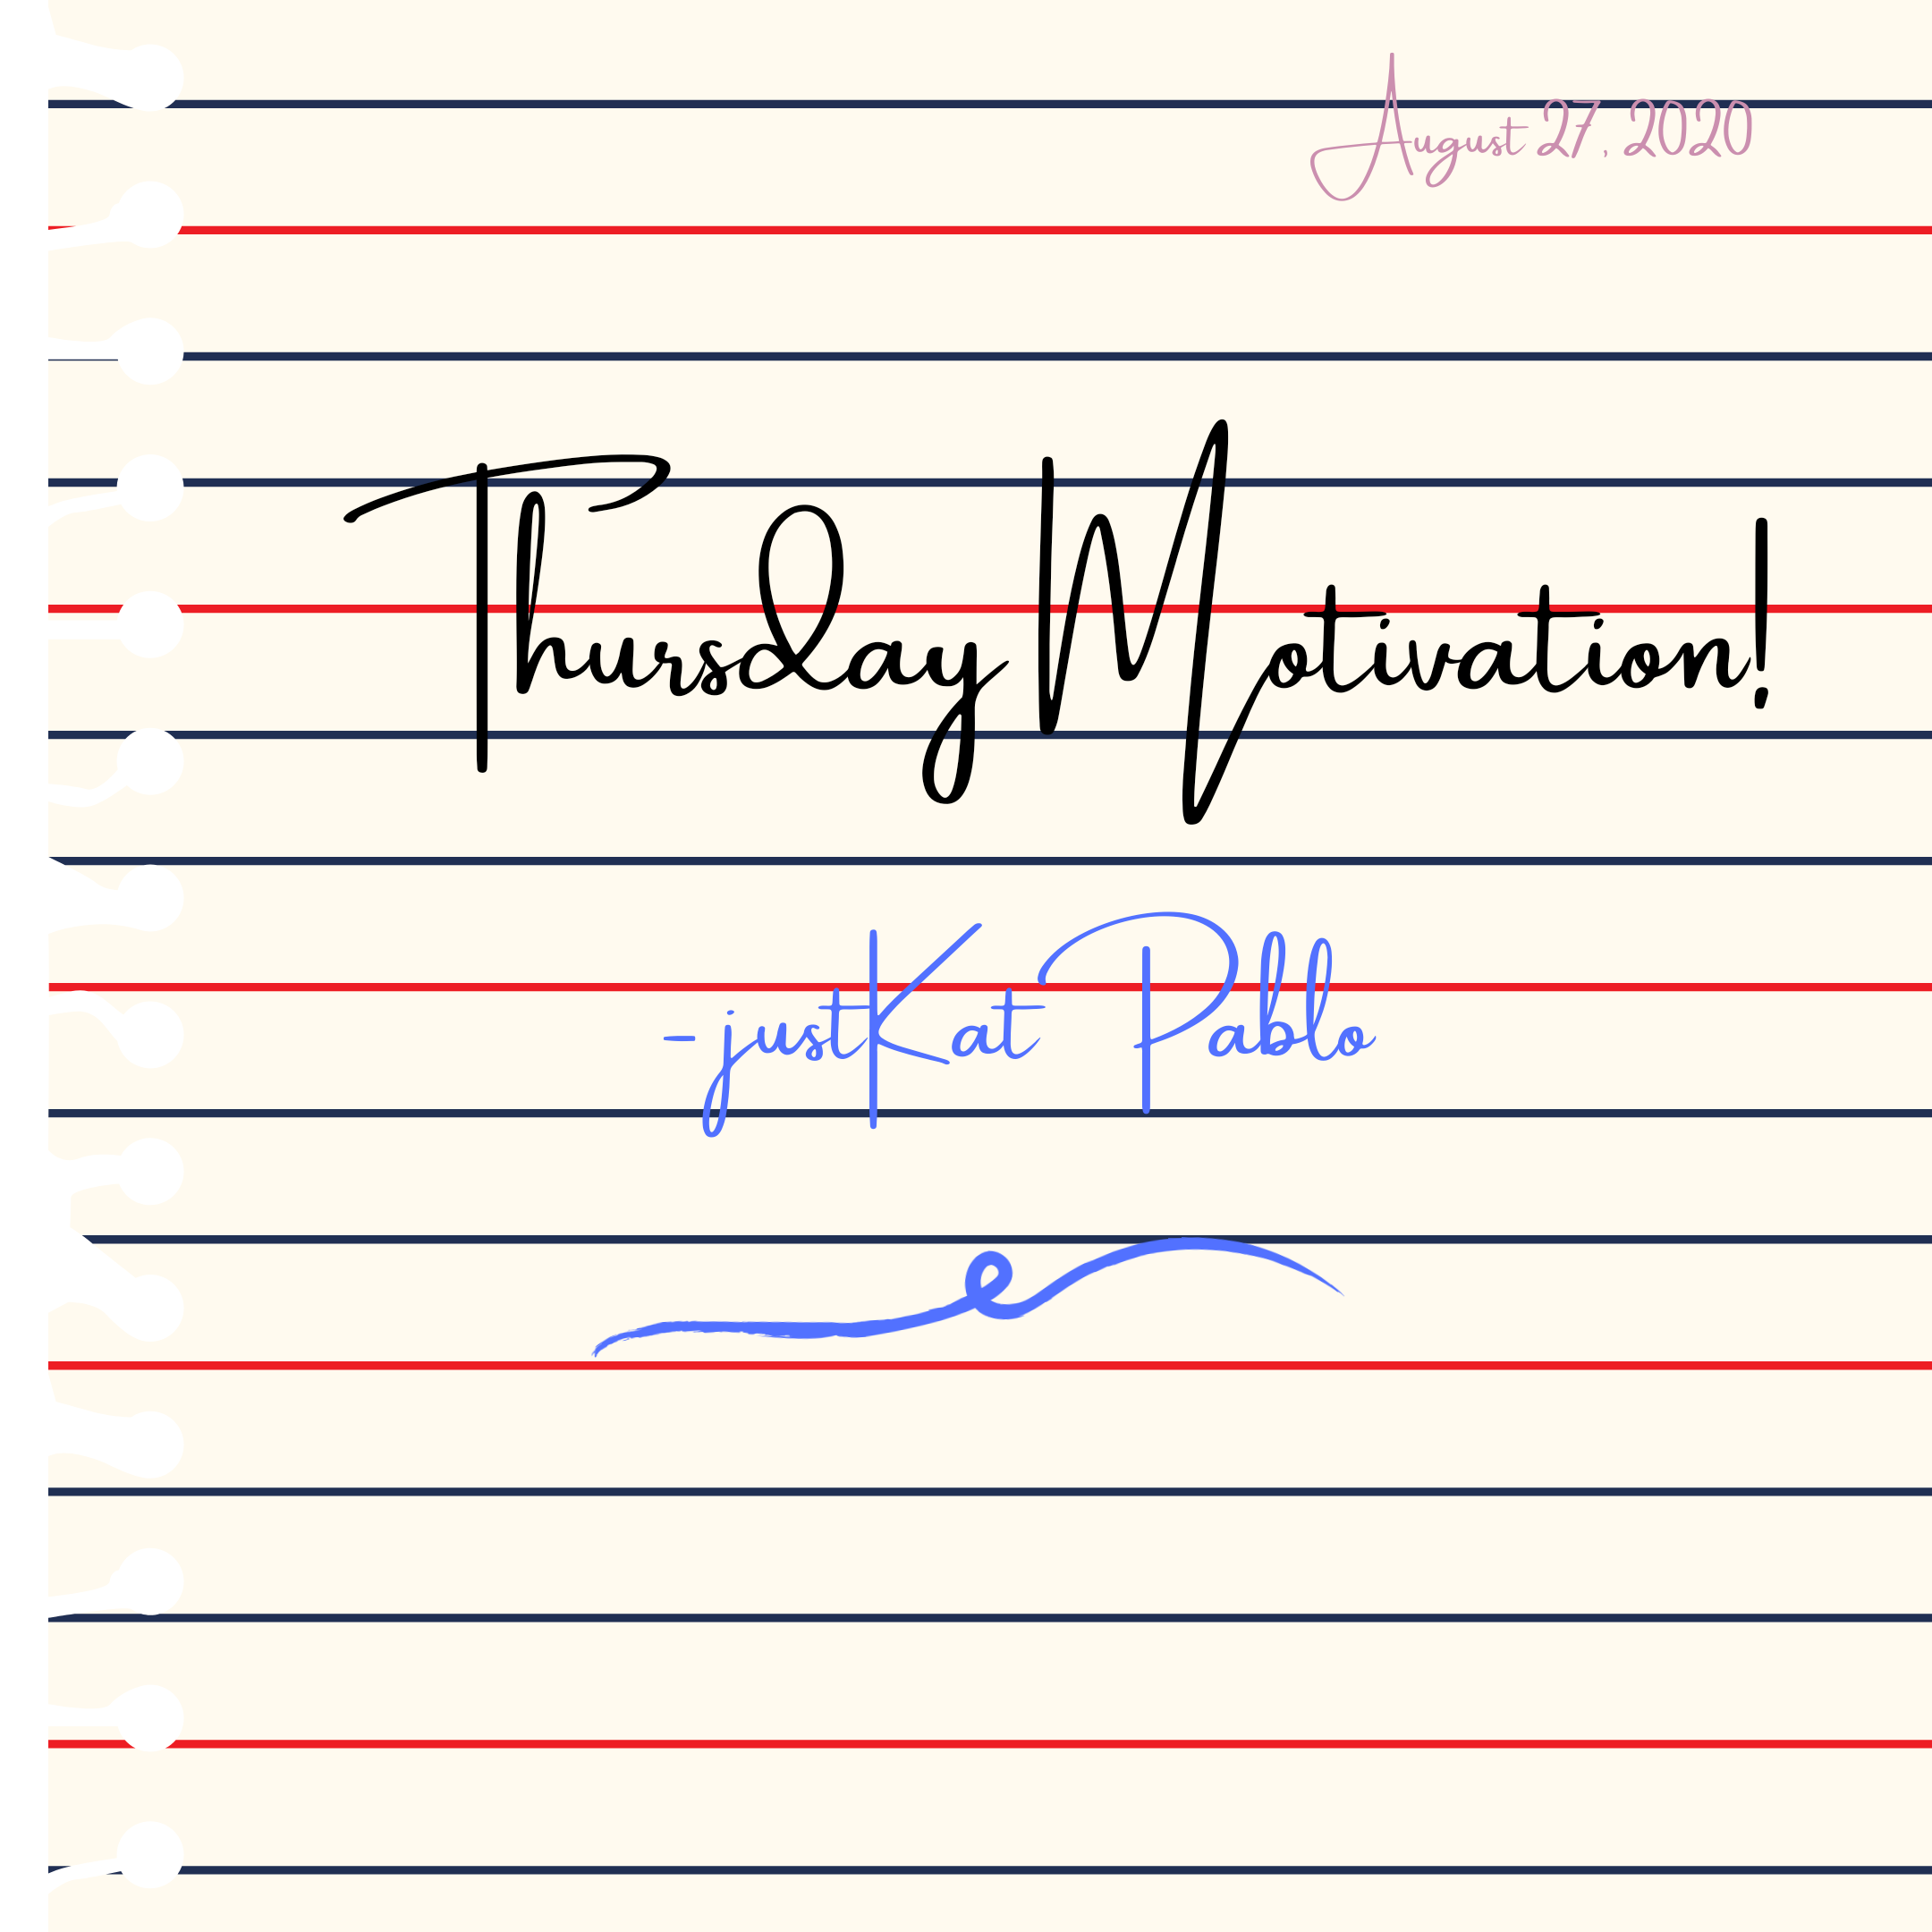 August 27, 2020
Thursday Motivation!
- justKat Pablo